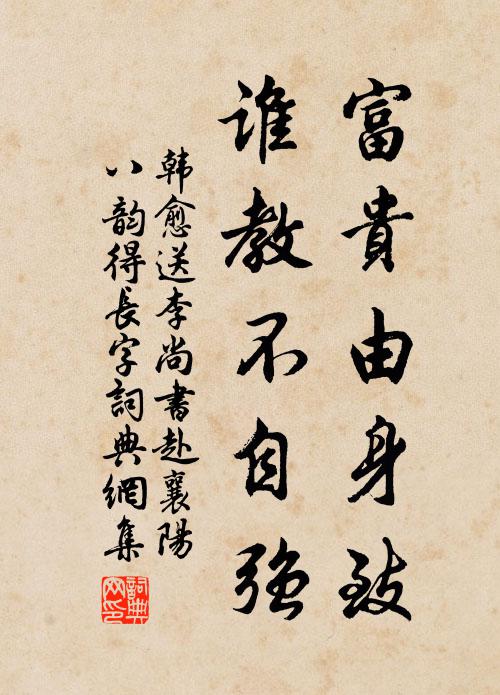 富貴由身致
誰教不自強
韩愈送李尚書赴襄陽
八韵得長字詞典網集
詞典
网印